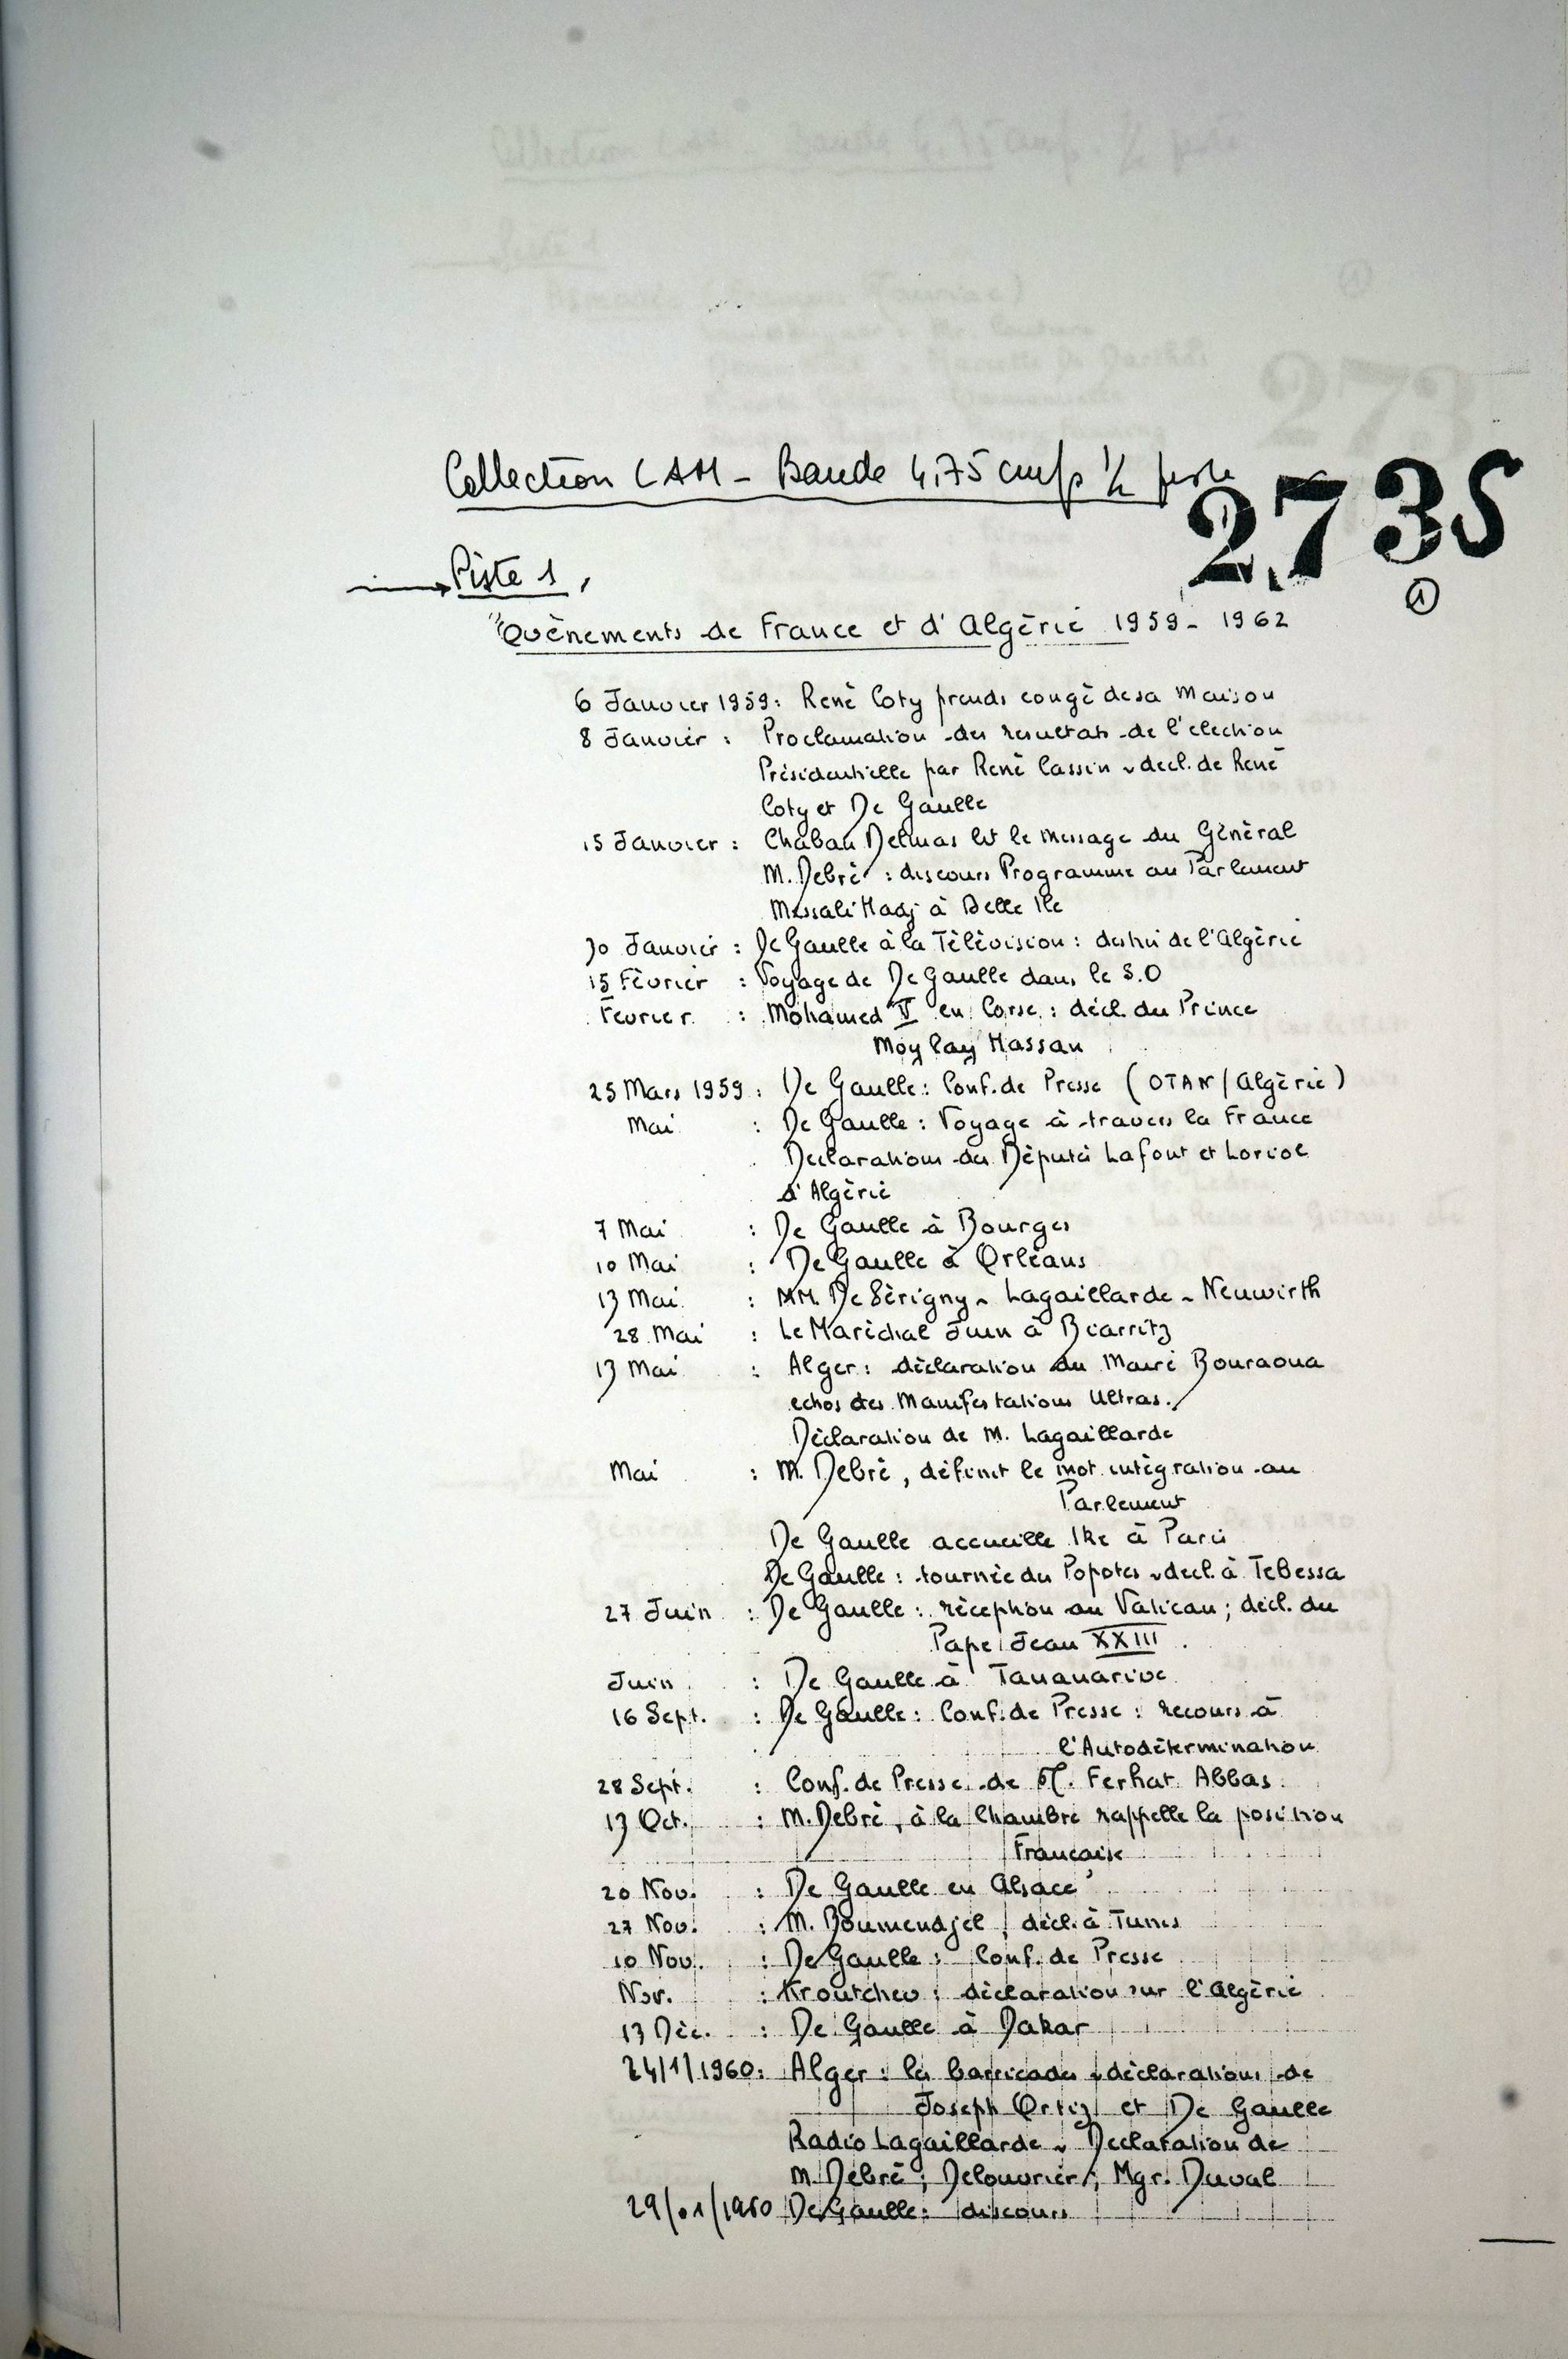 Collection CAM - Bande 4,75 cm/s ½ piste
2735
①
→ Piste 1,
"Evènements de France et d'Algérie 1959 - 1962
6 Janvier 1959: René Coty prends congé de sa Maison
8 Janvier : Proclamation des resultats de l'election
Présidentielle par René Cassin ~ decl. de René
Coty et De Gaulle
15 Janvier : Chaban Delmas lit le message du Général
M. Debré : discours Programme au Parlement
Messali Hadj à Belle Ile
30 Janvier : De Gaulle à la Télévision : destin de l'Algérie
15 Février : Voyage de De Gaulle dans le S.O
Fevrier : Mohamed V en Corse : décl. du Prince
Moylay Hassan
25 Mars 1959 : De Gaulle : Conf. de Presse (OTAN / Algérie)
Mai : De Gaulle : Voyage à travers la France
Declarations des Députés Lafont et Loriol
d'Algérie
7 Mai : De Gaulle à Bourges
10 Mai : De Gaulle à Orléans
13 Mai : MM. De Sérigny ~ Lagaillarde ~ Neuwirth
28 Mai : Le Maréchal Juin à Biarritz
13 Mai : Alger : déclaration du Maire Bouraoua
echos des Manifestations Ultras.
Déclaration de M. Lagaillarde
Mai : M. Debré, définit le mot intégration au
Parlement
De Gaulle accueille Ike à Paris
De Gaulle : tournée du Popotes ~ decl. à Tebessa
27 Juin : De Gaulle : réception au Vatican ; décl. du
Pape Jean XXIII.
Juin : De Gaulle à Tananarive
16 Sept. : De Gaulle : Conf. de Presse : recours à
l'Autodétermination
28 Sept. : Conf. de Presse de M. Ferhat Abbas.
13 Oct. : M. Debré, à la Chambre rappelle la position
Française
20 Nov. : De Gaulle en Alsace
27 Nov. : M. Boumendjel, décl. à Tunis
10 Nov. : De Gaulle : Conf. de Presse
Nov. : Kroutchev : déclaration sur l'Algérie
13 Déc. : De Gaulle à Dakar
24/1/1960 : Alger : les barricades ~ déclarations de
Joseph Ortiz et De Gaulle
Radio Lagaillarde ~ Declaration de
M. Debré ; Delouvrier ; Mgr. Duval
29/01/1960 De Gaulle : discours